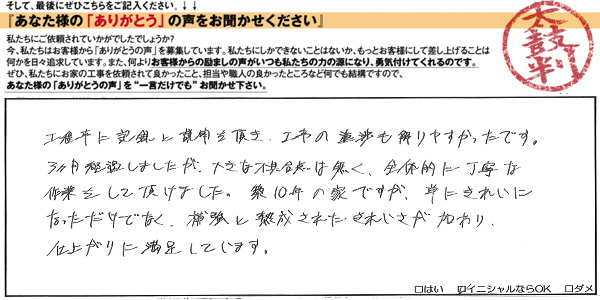 そして、最後にぜひこちらをご記入ください。↓↓↓
『あなた様の「ありがとう」の声をお聞かせください』
太鼓判
私たちにご依頼されていかがでしたでしょうか?
今、私たちはお客様から「ありがとうの声」を募集しています。私たちにしかできないことはないか、もっとお客様にして差し上げることは
何かを日々追求しています。また、何よりお客様からの励ましの声がいつも私たちの力の源になり、勇気付けてくれるのです。
ぜひ、私たちにお家の工事を依頼されて良かったこと、担当や職人の良かったところなど何でも結構ですので、
あなた様の「ありがとうの声」を“一言だけでも”お聞かせ下さい。
工程毎に記録と説明を頂き、工事の進捗も解りやすかったです。
3ヶ月経過しましたが、大きな不具合は無く、全体的に丁寧な
作業をして頂けました。築10年の家ですが、単にきれいに
なっただけでなく、補強と熟成されたきれいさが加わり、
仕上がりに満足しています。
□はい ☑イニシャルならOK □ダメ